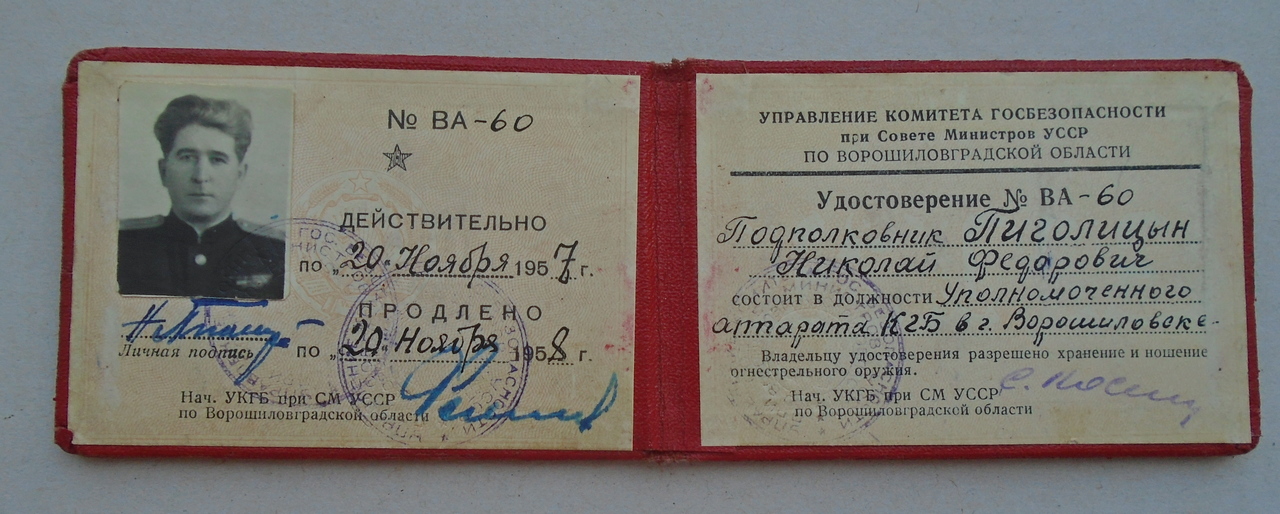 № ВА-60
ДЕЙСТВИТЕЛЬНО
по „20 „ Ноября 1957 г.
ПРОДЛЕНО
по „20 „ Ноября 1958 г.
Личная подпись
Нач. УКГБ при СМ УССР
по Ворошиловградской области
УПРАВЛЕНИЕ КОМИТЕТА ГОСБЕЗОПАСНОСТИ
при Совете Министров УССР
ПО ВОРОШИЛОВГРАДСКОЙ ОБЛАСТИ
Удостоверение № ВА-60
Подполковник Пиголицын
Николай Федарович
состоит в должности Уполномоченного
аппарата КГБ в г. Ворошиловске-
Владельцу удостоверения разрешено хранение и ношение
огнестрельного оружия.
Нач. УКГБ при СМ УССР
по Ворошиловградской области